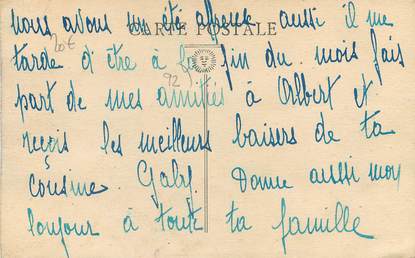 nous avons un été affreux aussi il me
CARTE POSTALE
20€
tarde d'être à la fin du mois fais
92
part de mes amitiés à Albert et
reçois les meilleurs baisers de ta
cousine Gaby Donne aussi mon
bonjour à toute ta famille